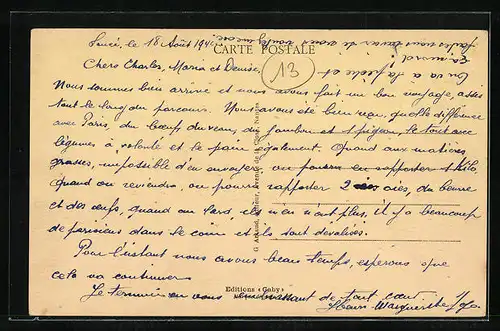 Sancé, le 18 Août 194
CARTE POSTALE
13
Chers Charles, Maria et Denise,
Nous sommes bien arrivé et nous avons fait un bon voyage, assis
tout le long du parcours. Nous avons été bien reçu, quelle différence
avec Paris, du bœuf du veau, du jambon et 1 pigeon, le tout avec
légumes à volonté et le pain également. Quand aux matières
grasses, impossible d'en envoyer ou pour en rapporter 1 kilo,
quand on reviendra, on pourra rapporter 2 oies, du beurre
et des œufs, quand au lard, ils n'en n'ont plus, il y a beaucoup
de parisiens dans le coin et ils sont dévalisés.
Pour l'instant nous avons beau temps, esperons que
cela va continuer
Je termine en vous embrassant de tout cœur
Henri Marguerite
Editions "Gaby"
On va à la pêche et